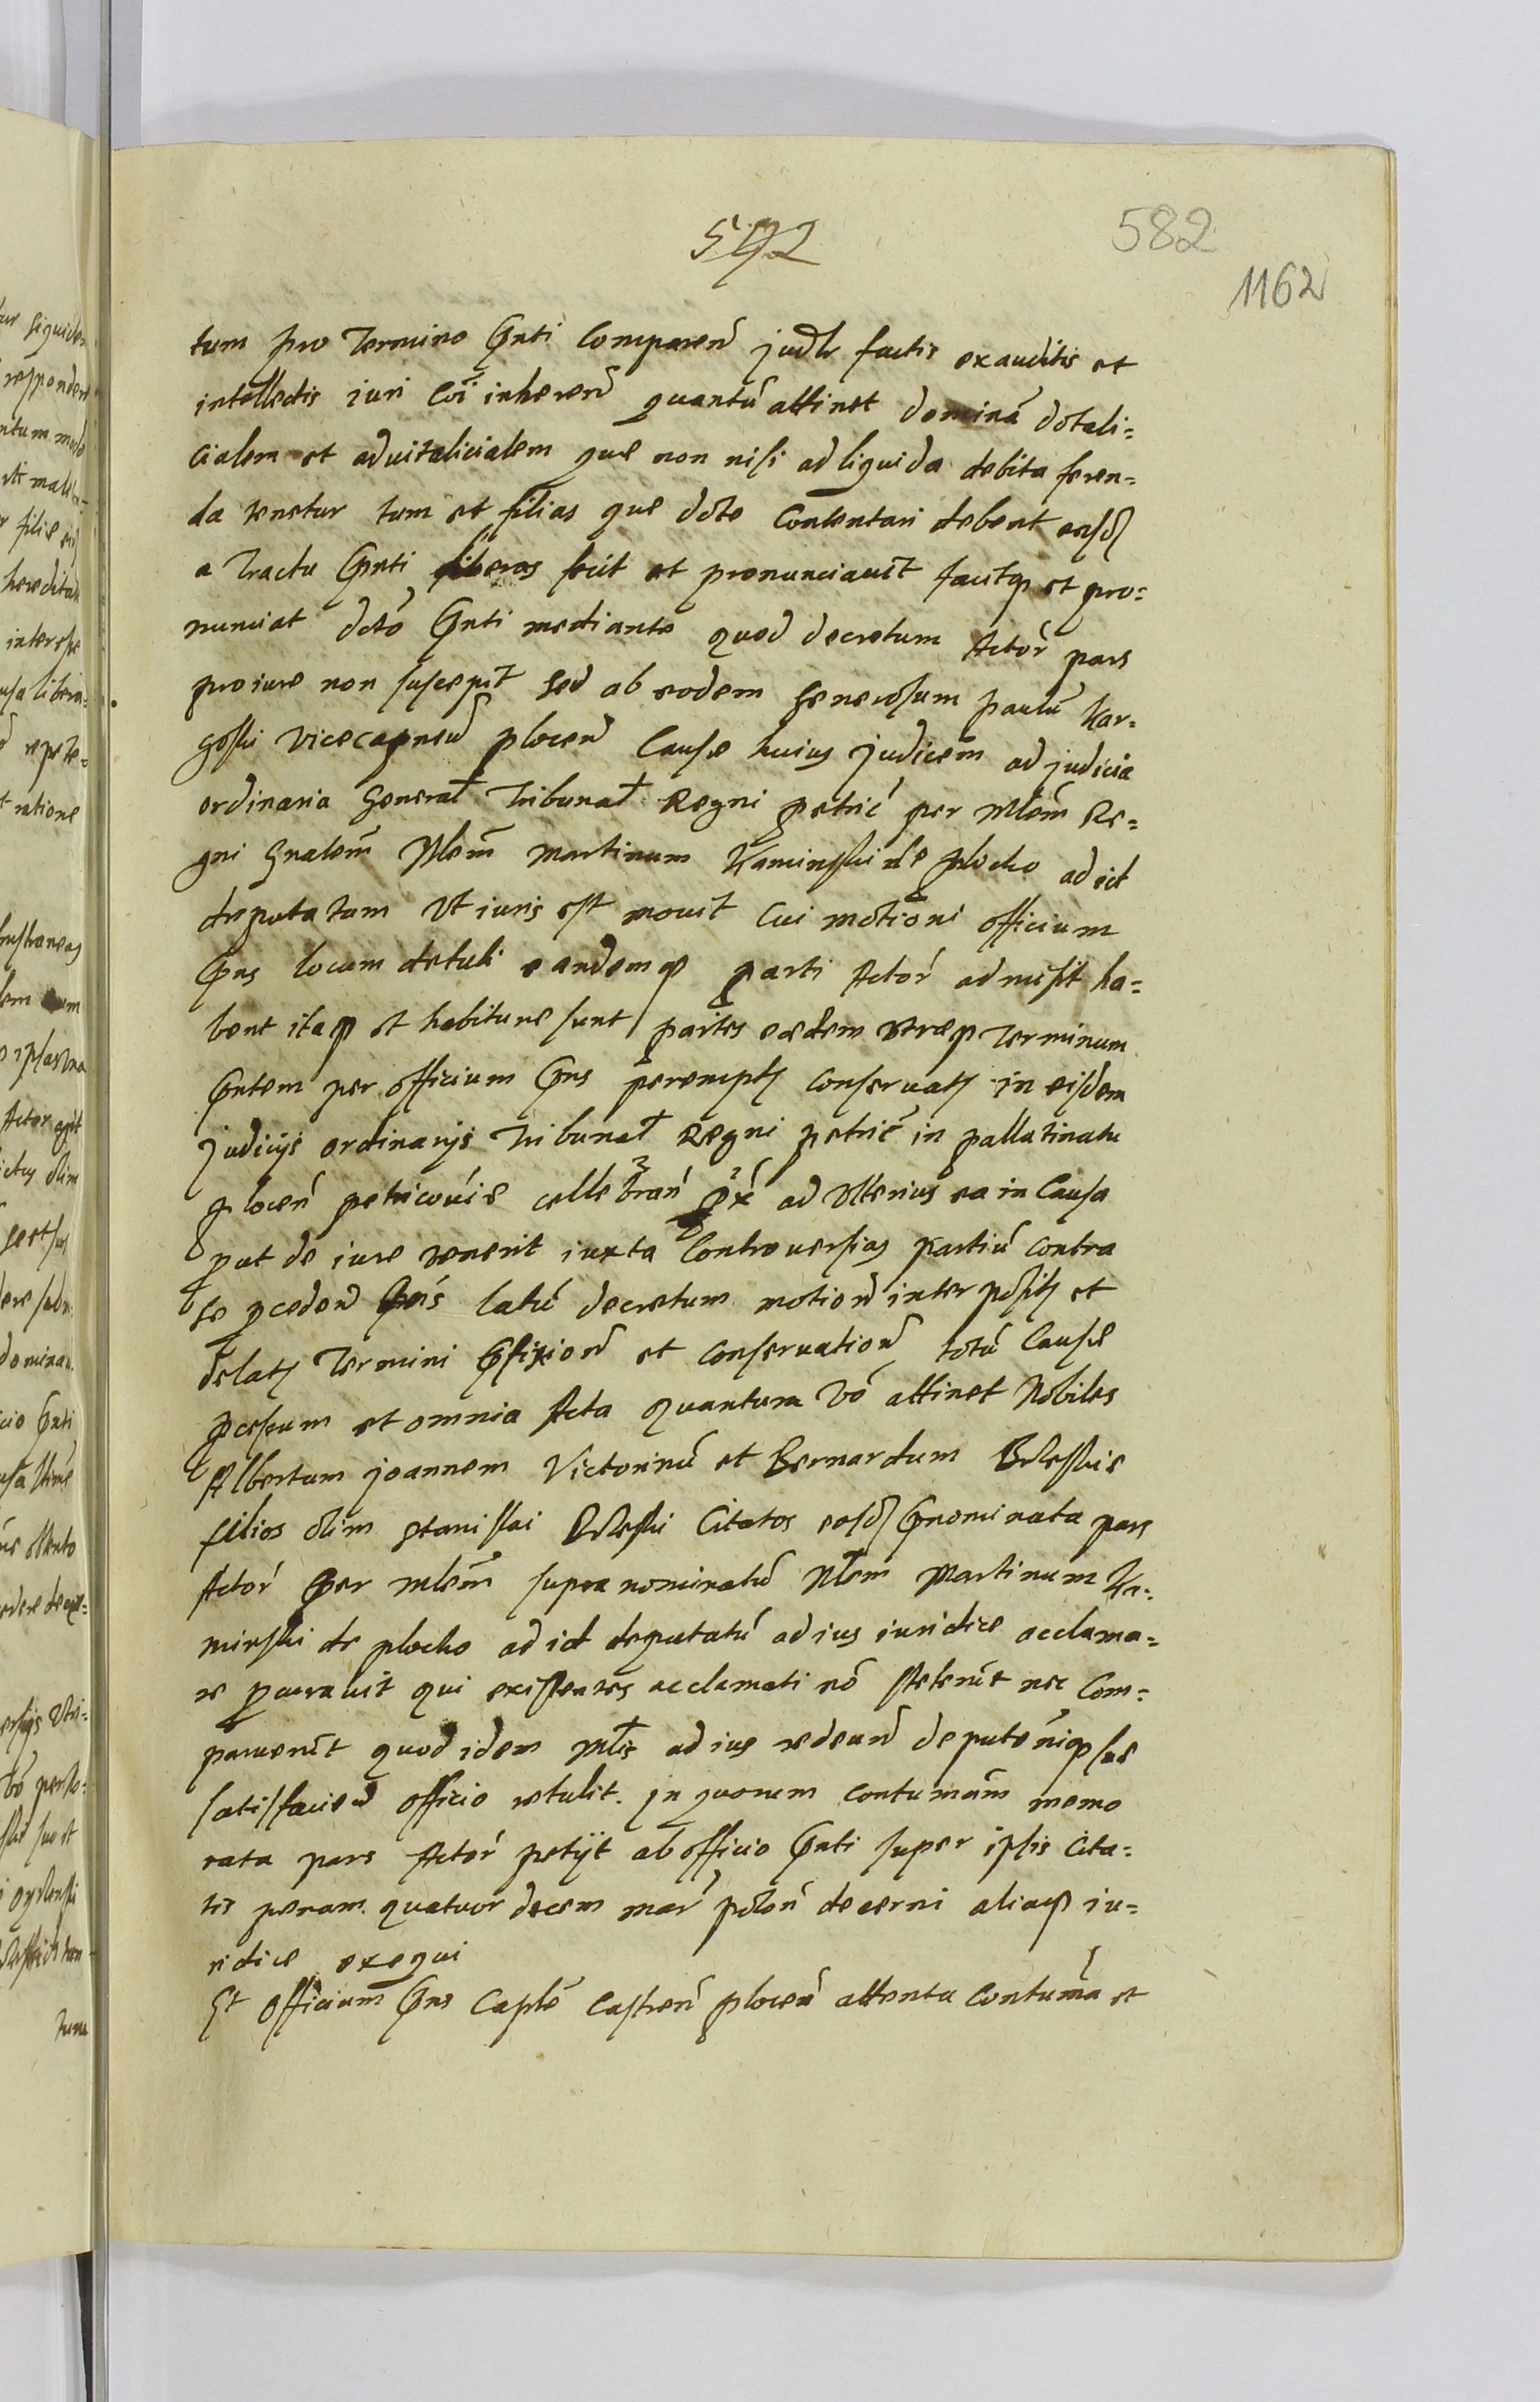 592
582
1162
tum pro Termino Pñti Compareñ judlr factis exauditis et
intellectis iuri Cõi inhereñ quantũ attinet dominã dotali=
cialem et aduitalicialem que non nisi ad liquida debita feren=
da tenetur tum et filias que dote Contentari debent easd
a Tractu Pñti liberas fecit et pronunciauit facitq et pro=
nunciat dcto Pñti mediante quod decretum Actor pars
pro iure non suscepit sed ab eodem Generosum Paulũ Kar=
goski Vicecapneũ ploceñ Cause huius Judicem ad judicia
ordinaria General Tribunal Regni petric per Mlem Re=
gni Gnalem Nlem Martinum Kaminski de plocko ad id
deputatum Vt iuris est mouit Cui motioni officium
Pñs locum detuli eandemq parti Actor admisit ha=
bent itaq et habiture sunt partes eedem vtreq Terminum
Pñtem per officium Pñs perempt conseruat in eisdem
Judicijs ordinarijs Tribunal Regni petric in pallatinatu
ploceñ petricouie cellebrañ ad vlterius ea in Causa
put de iure venerit iuxta Controuersias Partiũ contra
se pcedeñ latũ decretum motioñ interposit et
delat Termini Pfixioñ et conseruatioñ totũ Cause
pcessum et omnia Acta quantum Vo attinet Nobiles
Albertum Joannem Victorinũ et Bernardum
filios olim Stanislai Citatos eosd Pnominata pars
Actor per mlem supra nominatũ Nlem Martinum Ka=
minski de plocko ad id deputatũ ad ius iuridice acclama=
re pcurauit qui existentes acclamati nõ steterũt nec Com=
paruerũt quod idem Mlis ad ius redeuñ deputõniq sue
satisfacieñ officio retulit. Jn quorum contumam memo
rata pars Actor petijt ab officio Pñti super ipsis Cita=
tis penam quatuor decem mar poloñ decerni aliaq iu=
ridice exequi
Et Officium Pñs Caple Castreñ ploceñ attenta Contuma et